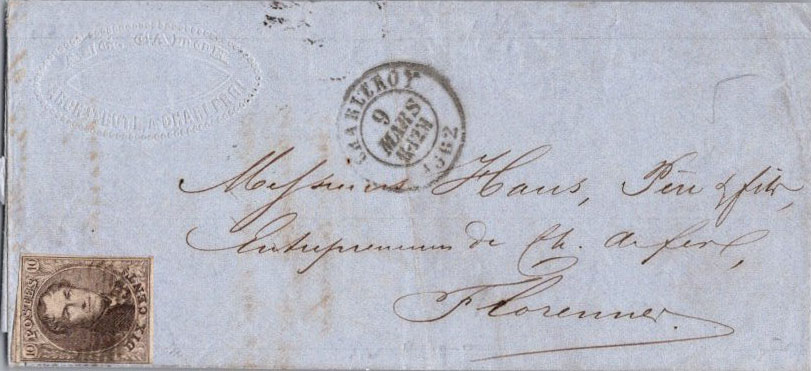 CHARLEROY
9
MARS
1862
Messieurs Haus, Père & fils,
Entrepreneurs de Ch. de fer,
Florennes.
10 POSTES 10
DIX CENTS
A CHARLEROI